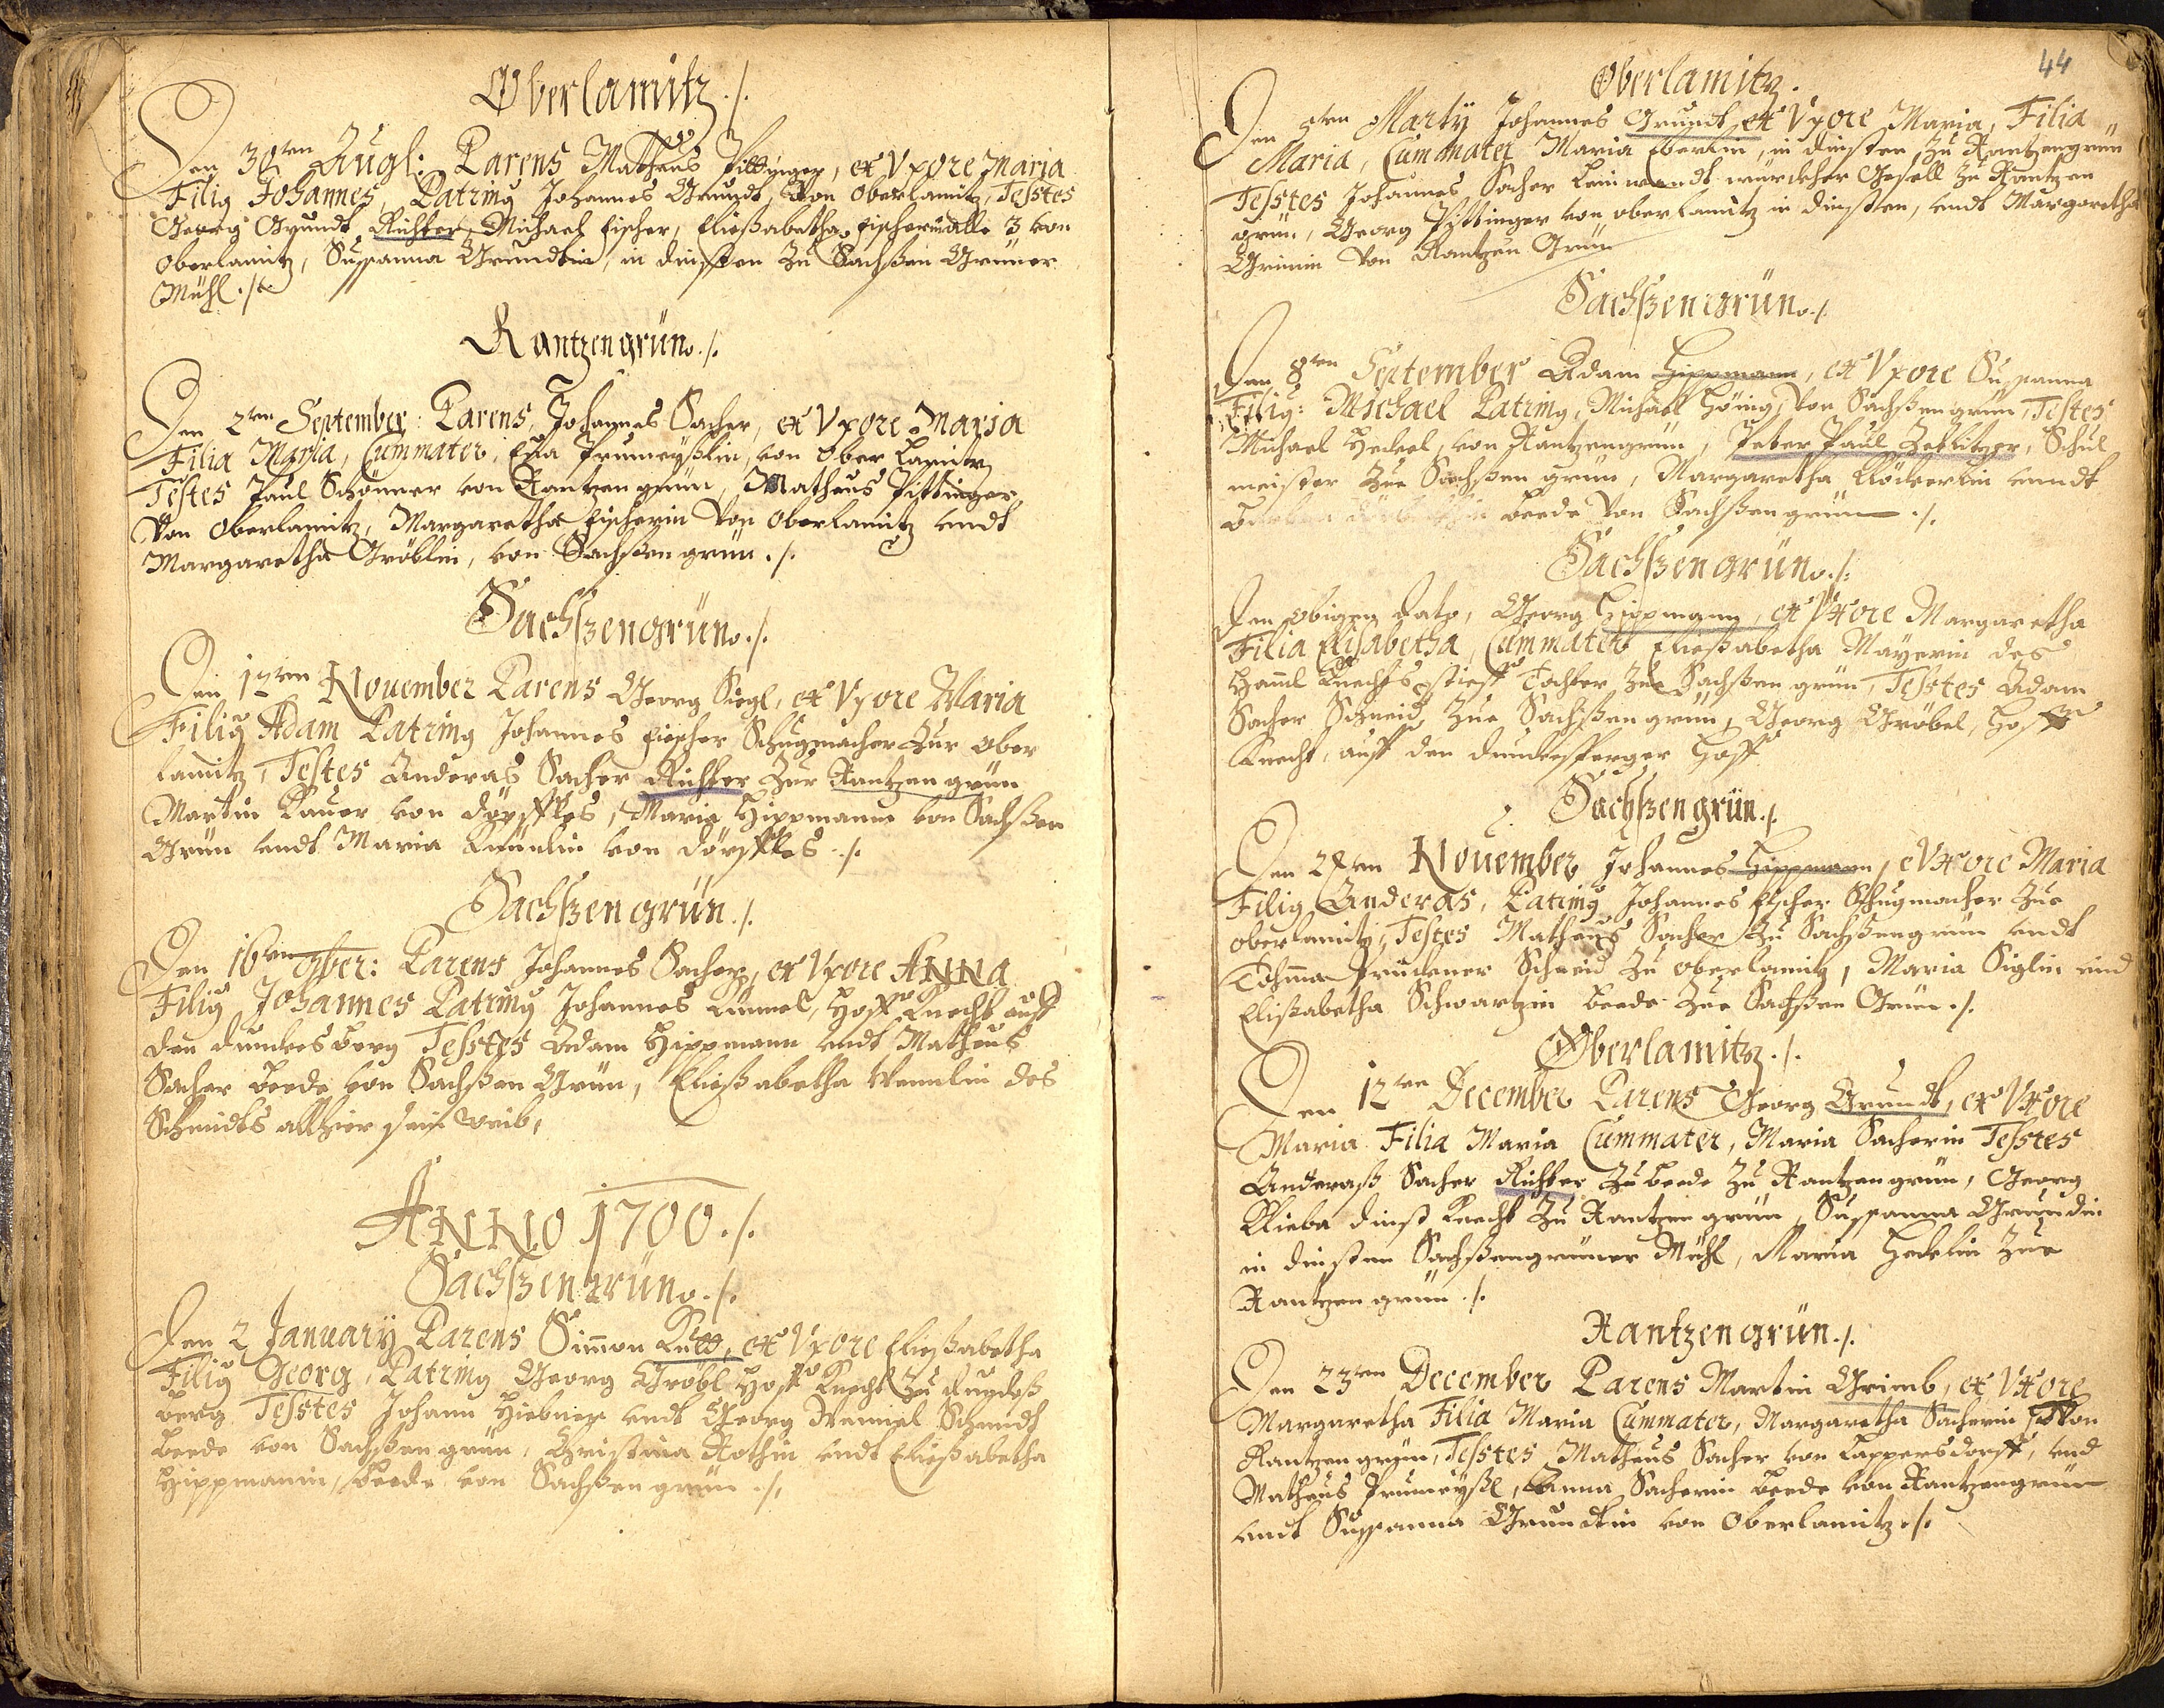 Oberlamitz ./.
Den 30ten Augl: Parens Matheus Pittinger, et Vxore Maria
Filiꝰ Johannes, Patrinꝰ Johannes Grundt, Von Oberlamitz, Testes
Georg Grundt Richter, Michael Fischer, Eließabetha Fischerin alle 3 von
Oberlamitz, Sussanna Grundtin, in dinsten Zu Sachßen Grüner
Mühl ./.
Rantzengrün ./.
Den 2ten September: Parens, Johannes Sacher, et Vxore Maria
Filia Maria, Cummater, Eva Prumeyßlin, von Ober Lamitz
Testes Paul Schönner von Rantzengrün, Matheus Pittinger
Von Oberlamitz, Margaretha Fischerin Von Oberlamitz undt
Margaretha Gröblin, von Sachßengrün ./.
Sachßengrün ./.
Den 12ten November Parens Georg Sigl, et Vxore Maria
Filiꝰ Adam Patrinꝰ Johannes Fischer Schugmacher Zur Ober
lamitz, Testes Anderas Sacher Richter Zur Rantzengrün
Martin Bauer von Dörffles, Maria Hippmanin von Sachßen
Grün undt Maria von Dörffles ./.
Sachßengrün ./.
Den 16ten Parens Johannes Sacher, et Vxore ANNA
Filiꝰ Johannes Patrinꝰ Johannes Hoff Knecht auff
den dunckesberg Testes Adam Hippmann undt Matheus
Sacher beede von Sachßen Grün, Eließabetha Wemlin des
Schmidts allhier sein weib,
ANNO 1700 ./.
Sachßengrün ./.
Den 2 January Parens Simon et Vxore Eließabetha
Filiꝰ Georg, Patrinꝰ Georg Gröbl Hoff Knecht Zu
berg Testes Johann Hiebner undt Georg Schmidt
beede von Sachßengrün, Christina Rothin undt Eließabetha
Hippmanin, beede von Sachßengrün ./.
44
Oberlamitz.
Den Marty Johannes Grundt et Vxore Maria, Filia
Maria, Cummater Maria Eberlin, in dinsten Zu Rantzengrün
Testes Johannes Sacher Leinwandt würckher Gesell Zu Rantzen
grün, Georg Pittinger von Oberlamitz in dinsten, undt Margaretha
Grimin von Rantzen Grün
Sachßengrün ./.
Den 8ten September Adam Hippmann, et Vxore Sussanna
Filiꝰ: Michael Patrinꝰ, Michael Hönig, Von Sachßengrün, Testes
Michael Heckel, von Rantzengrün, Peter Paul Zettlitzer, Schul
meister Zue Sachßengrün, Margaretha undt
beede Von Sachßengrün ./.
Sachßengrün ./.
Den obigen dato, Georg Hippmann, et Vxore Margaretha
Filia Elisabetha, Cummater Eließabetha Mayerin des
Knechts stieff Tochter Zue Sachßengrün, Testes Adam
Sacher Schneid Zue Sachßengrün, Georg Gröbel, Hoff
Knecht, auff den Hoff
Sachßengrün ./.
Den November Johannes Hippmann, e Vxore Maria
Filiꝰ Anderas, Patrinꝰ Johannes Fischer Schugmacher Zue
Oberlamitz, Testes Matheus Sacher Zu Sachßengrün undt
Schneid Zu Oberlamitz, Maria Siglin und
Elißabetha Schwartzin beede Zue Sachßen Grün ./.
Oberlamitz ./.
Den 12ten December Parens Georg Grundt, et Vxore
Maria Filia Maria Cummater, Maria Sacherin Testes
Anderaß Sacher Richter Zu beede Zu Rantzengrün, Georg
dinst Knecht Zu Rantzengrün, Sussanna Grundin
in dinsten Sachßengrüner Mühl, Maria Heckelin Zue
Rantzengrün ./.
Rantzengrün ./.
Den 23ten December Parens Martin Grimb, et Vxore
Margaretha Filia Maria Cummater, Margaretha Sacherin Von
Rantzengrün, Testes Matheus Sacher von Lappersdorff, und
Matheus Prumeyßl, Anna Sacherin beede von Rantzengrün
undt Sussanna Grundtin von Oberlamitz ./.